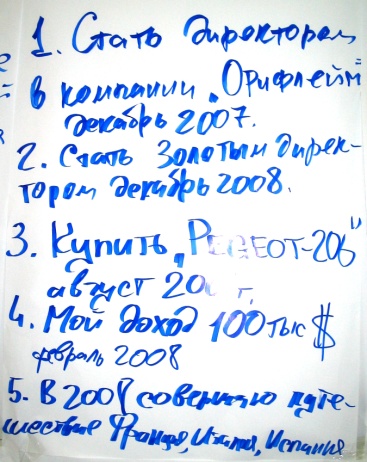 1. Стать директором
в компании „Орифлейм"
декабрь 2007.
2. Стать Золотым дирек-
тором декабрь 2008.
3. Купить „PEGEOT-206"
август г.
4. Мой доход 100 тыс $
февраль 2008
5. В 2008 совершаю путе-
шествие Франция, Италия, Испания